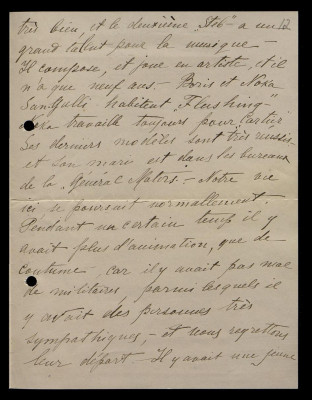 très bien, et le deuxième "Alb" a un
grand talent pour la musique –
Il compose, et joue en artiste, et il
n'a que neuf ans. – Boris et Noka
San-Galli habitent "Flushing" –
Noka travaille toujours pour Cartier
Ses derniers modèles sont très réussis –
et son mari est dans les bureaux
de la "Général Motors. – Notre vie
ici se poursuit normallement.
Pendant un certain temp il y
avait plus d'animation, que de
coutume, car il y avait pas mal
de militaires parmi lesquels il
y avait des personnes très
sympathiques, – et nous regrettons
leur départ – Il y avait une jeune